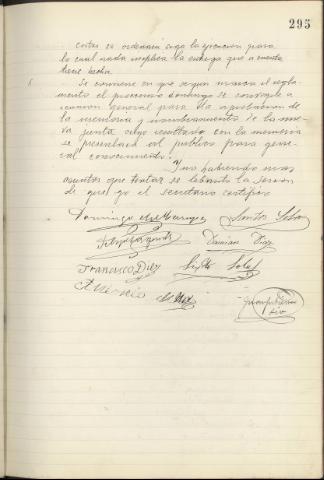 295
costas se ordenaria siga la ejecucion para
lo cual nada implica la entrega que a cuenta
tiene hecha.
Se conviene en que segun marca el regla-
mento el proximo domingo se convoque a
reunion general para la aprobacion de
la memoria y nombramiento de la nue-
va junta cuyo resultado con la memoria
se presentará al publico para gene-
ral conocimiento.
Y no habiendo mas
asuntos que tratar se lebanta la sesion
de que yo el secretario certifico
Domingo
Damian Diaz
Francisco Diez
Sixto